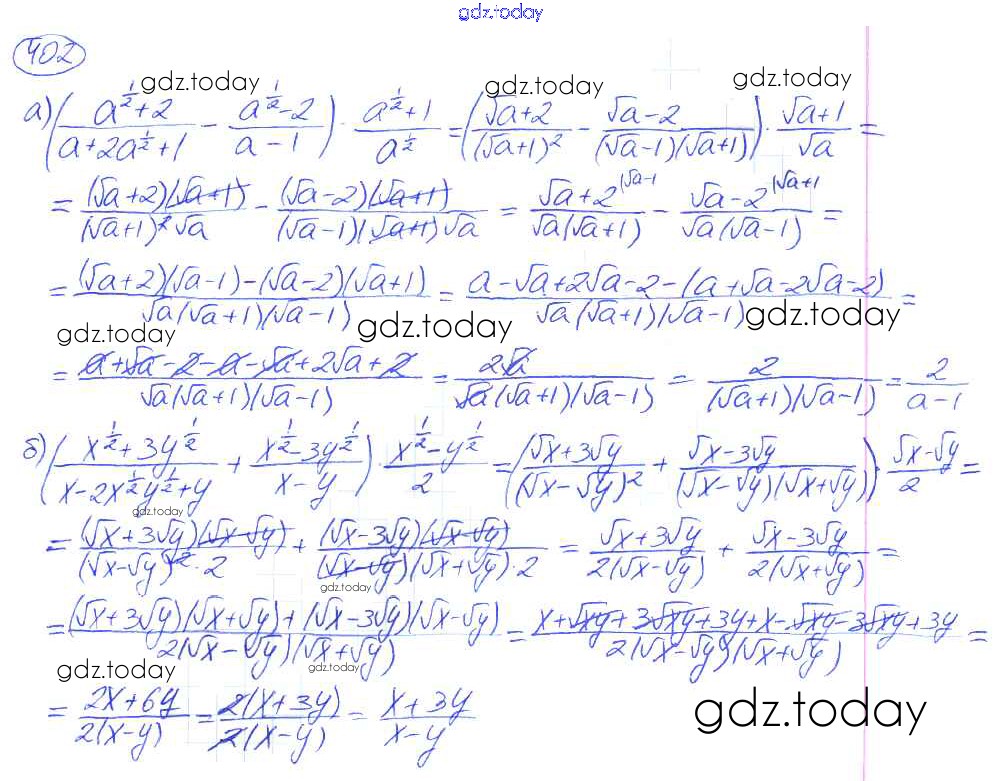 gdz.today
402
gdz.today gdz.today gdz.today
а) ((a^{1/2}+2)/(a+2a^{1/2}+1) - (a^{1/2}-2)/(a-1)) · (a^{1/2}+1)/a^{1/2} = ((√a+2)/(√a+1)^2 - (√a-2)/((√a-1)(√a+1))) · (√a+1)/√a =
= (√a+2)(√a+1)/((√a+1)^2 √a) - (√a-2)(√a+1)/((√a-1)(√a+1)√a) = (√a+2^{(√a-1})/(√a(√a+1)) - (√a-2^{(√a+1})/(√a(√a-1)) =
= ((√a+2)(√a-1)-(√a-2)(√a+1))/(√a(√a+1)(√a-1)) = (a-√a+2√a-2-(a+√a-2√a-2))/(√a(√a+1)(√a-1)) =
gdz.today gdz.today gdz.today
= (a+√a-2-a-√a+2√a+2)/(√a(√a+1)(√a-1)) = 2√a/(√a(√a+1)(√a-1)) = 2/((√a+1)(√a-1)) = 2/(a-1)
б) ((x^{1/2}+3y^{1/2})/(x-2x^{1/2}y^{1/2}+y) + (x^{1/2}-3y^{1/2})/(x-y)) · (x^{1/2}-y^{1/2})/2 = ((√x+3√y)/(√x-√y)^2 + (√x-3√y)/((√x-√y)(√x+√y))) · (√x-√y)/2 =
gdz.today
= (√x+3√y)(√x-√y)/((√x-√y)^2·2) + (√x-3√y)(√x-√y)/((√x-√y)(√x+√y)·2) = (√x+3√y)/(2(√x-√y)) + (√x-3√y)/(2(√x+√y)) =
gdz.today
= ((√x+3√y)(√x+√y)+(√x-3√y)(√x-√y))/(2(√x-√y)(√x+√y)) = (x+√xy+3√xy+3y+x-√xy-3√xy+3y)/(2(√x-√y)(√x+√y)) =
gdz.today
= (2x+6y)/(2(x-y)) = 2(x+3y)/(2(x-y)) = (x+3y)/(x-y)
gdz.today